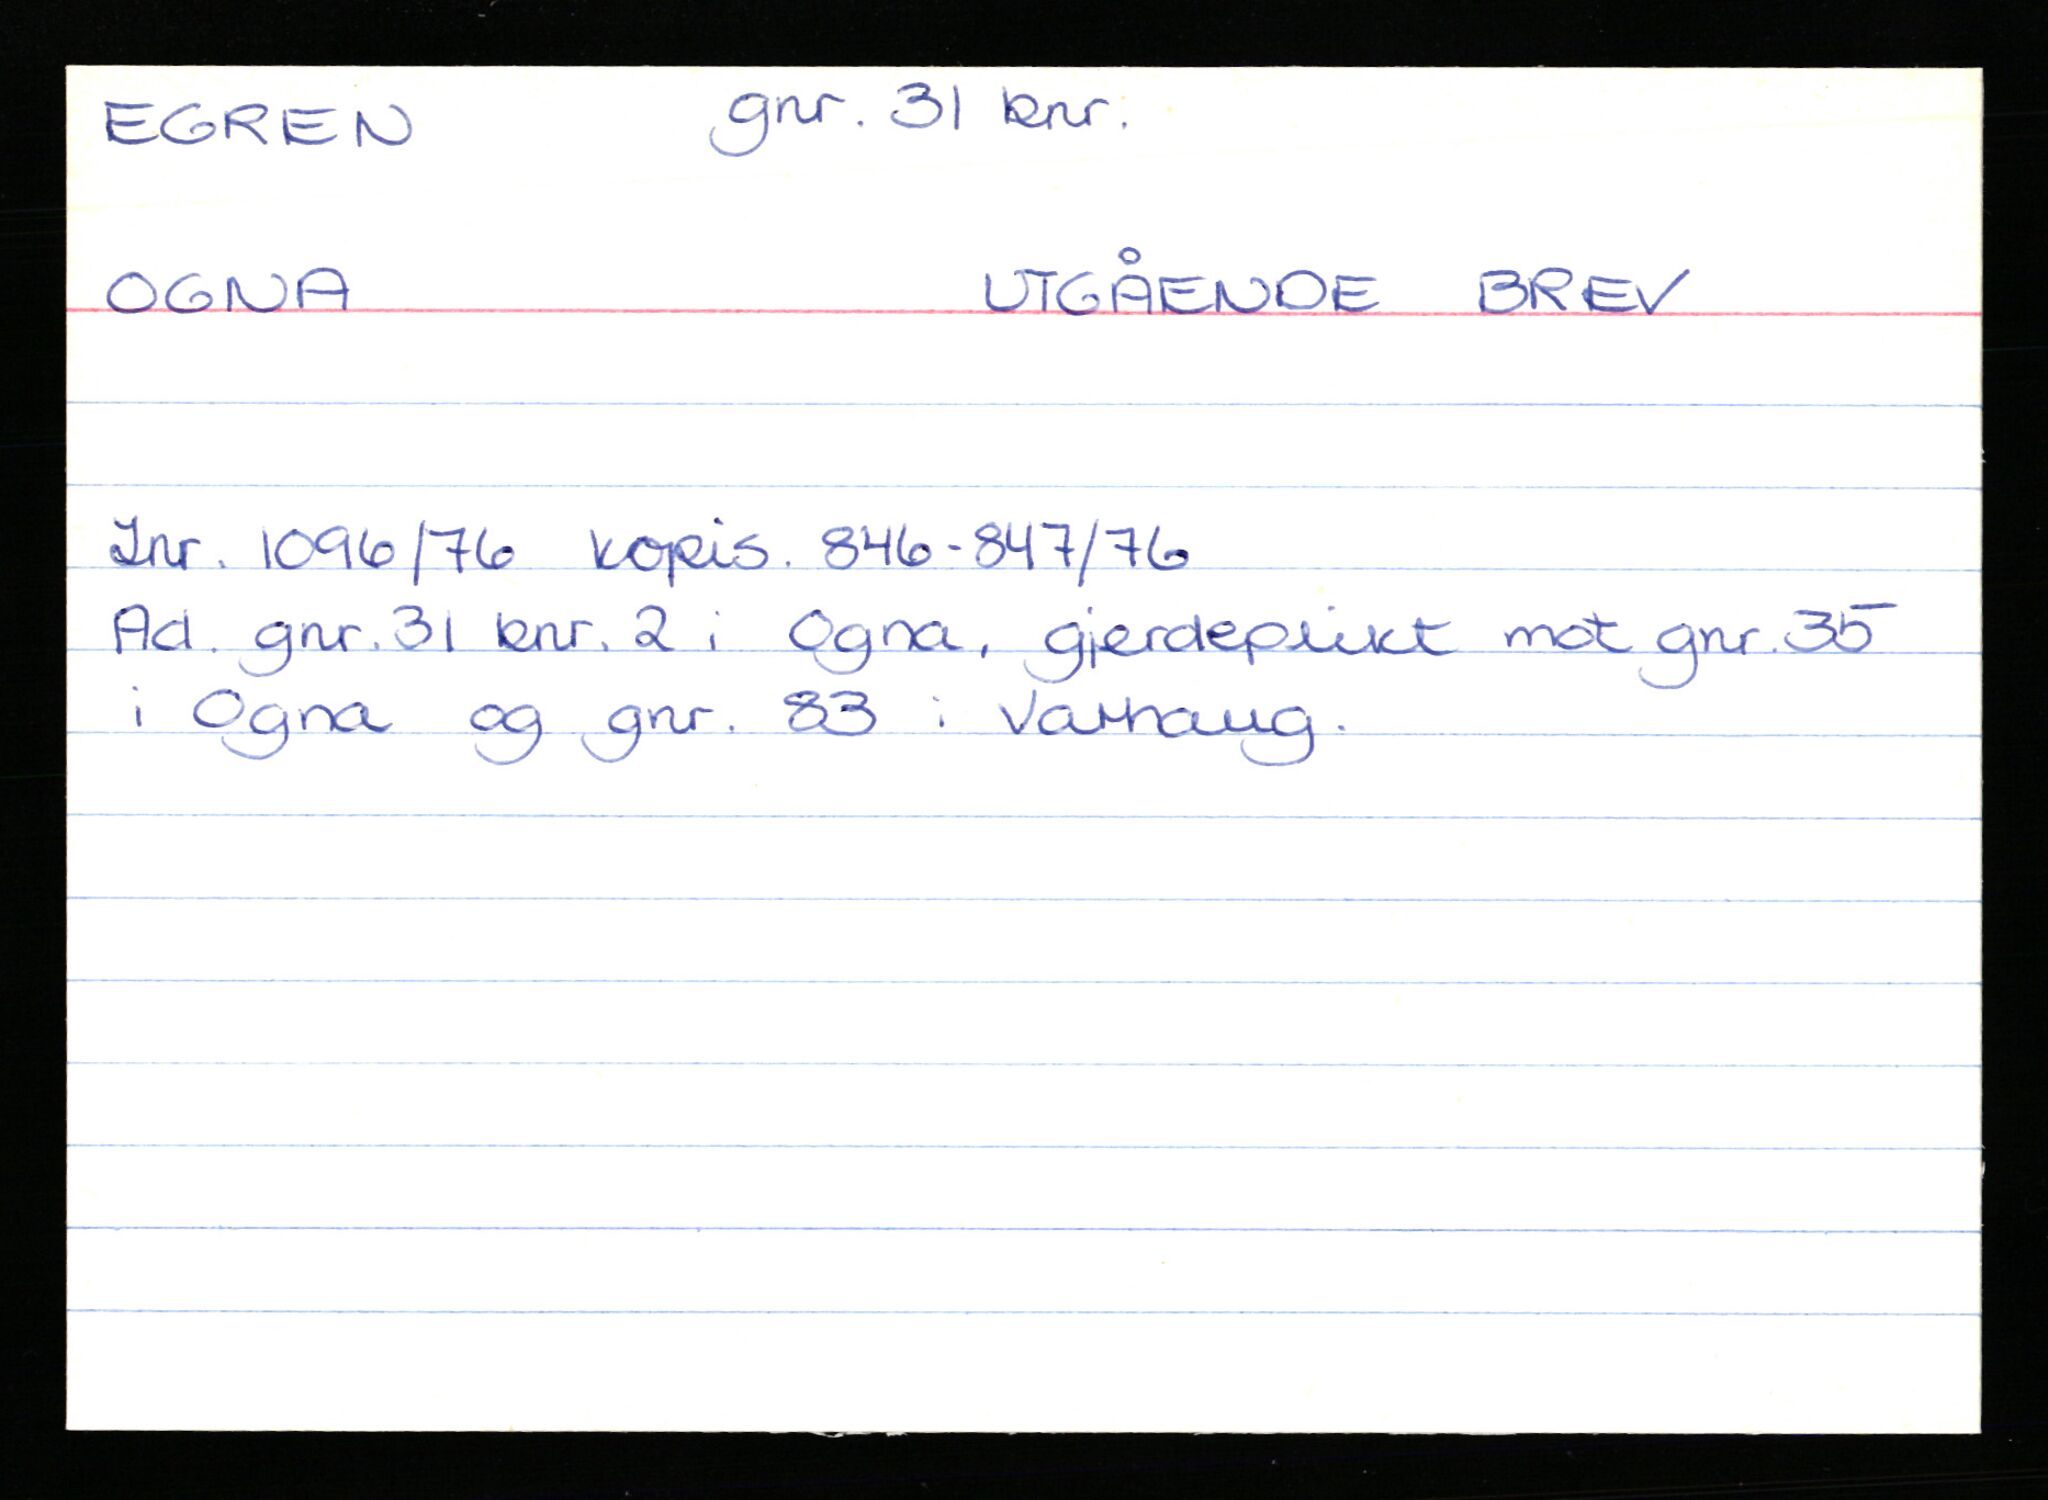 EGREN gnr. 31 bnr.
OGNA UTGÅENDE BREV
Jnr. 1096/76 kopis. 846-847/76
Ad. gnr. 31 bnr. 2 i Ogna, gjerdeplikt mot gnr. 35
i Ogna og gnr. 83 i Varhaug.